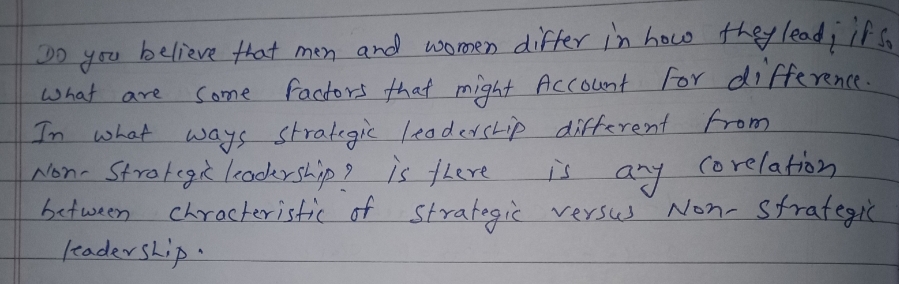 Do you believe that men and women differ in how they lead; if so
what are some factors that might Account For difference.
In what ways strategic leadership different from
Non- Strategic leadership? is there is any corelation
between chracteristic of strategic versus Non- Strategic
leadership.